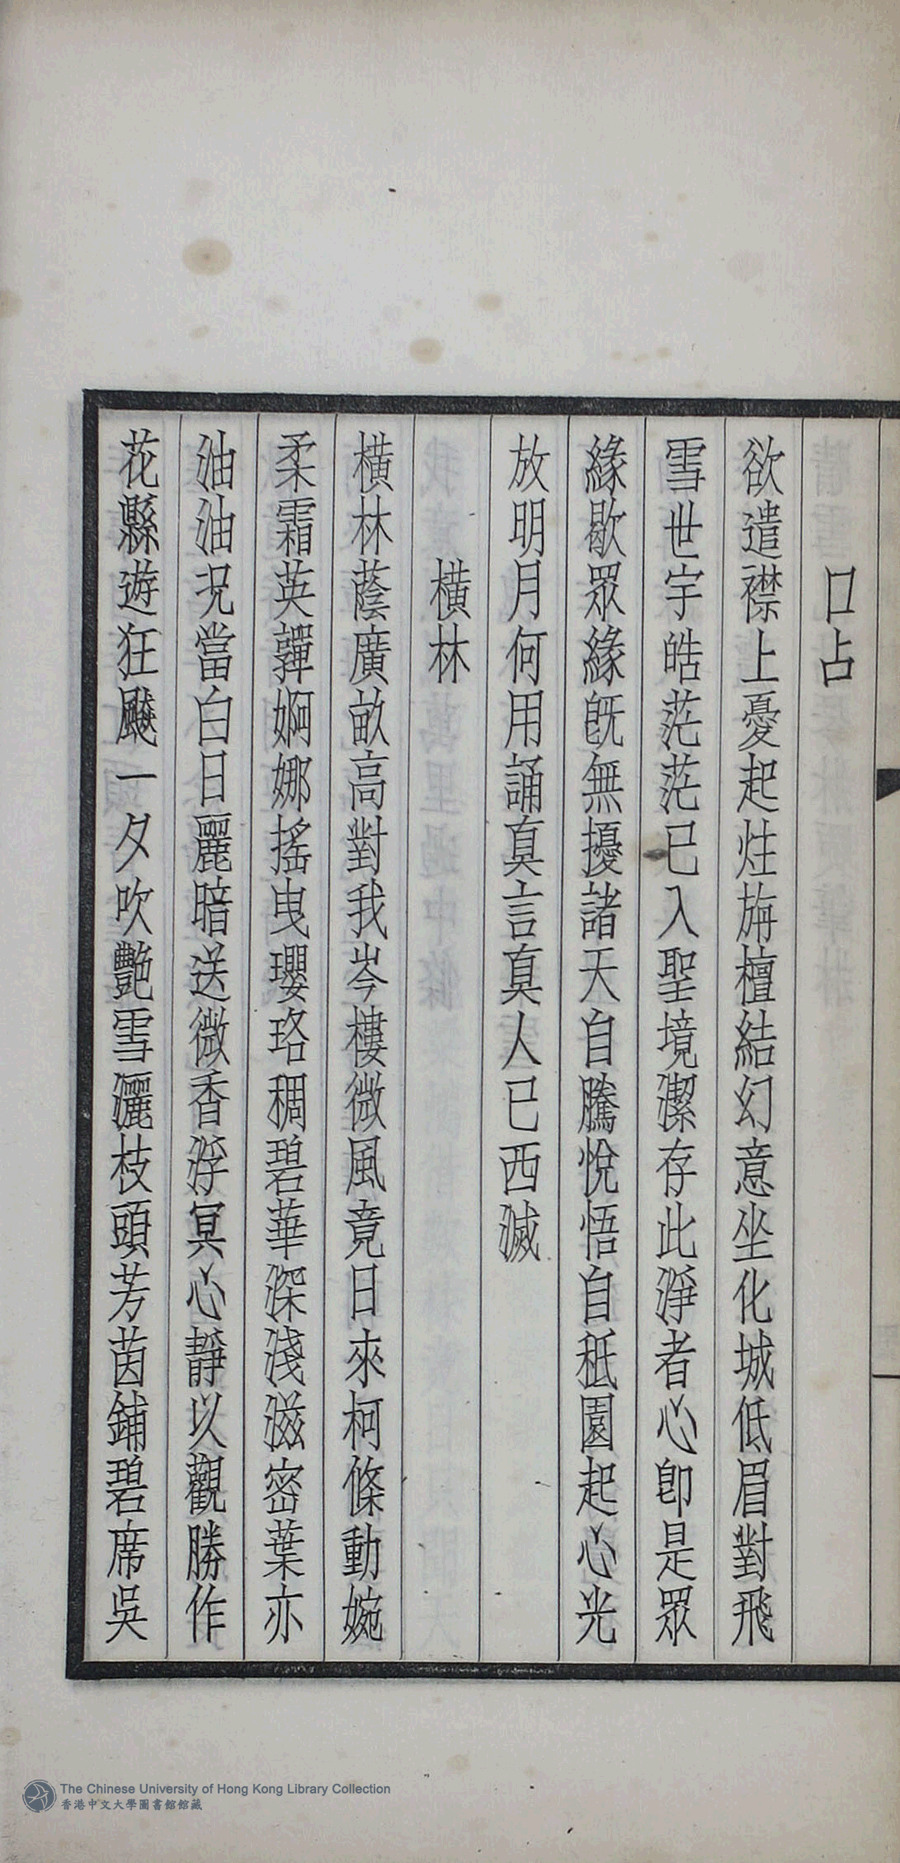 口占
欲遣襟上憂起炷旃檀結幻意坐化城低眉對飛
雪世宇皓茫茫已入聖境潔存此淨者心卽是眾
緣歇眾緣旣無擾諸天自騰悅悟自秖園起心光
放明月何用誦真言真人已西滅
橫林
橫林蔭廣畝高對我岑樓微風竟日來柯條動婉
柔霜英嚲婀娜搖曳瓔珞稠碧華深淺滋密葉亦
油油況當白日麗暗送微香浮冥心靜以觀勝作
花縣遊狂飈一夕吹艷雪灑枝頭芳茵鋪碧席吳
The Chinese University of Hong Kong Library Collection
香港中文大學圖書館館藏